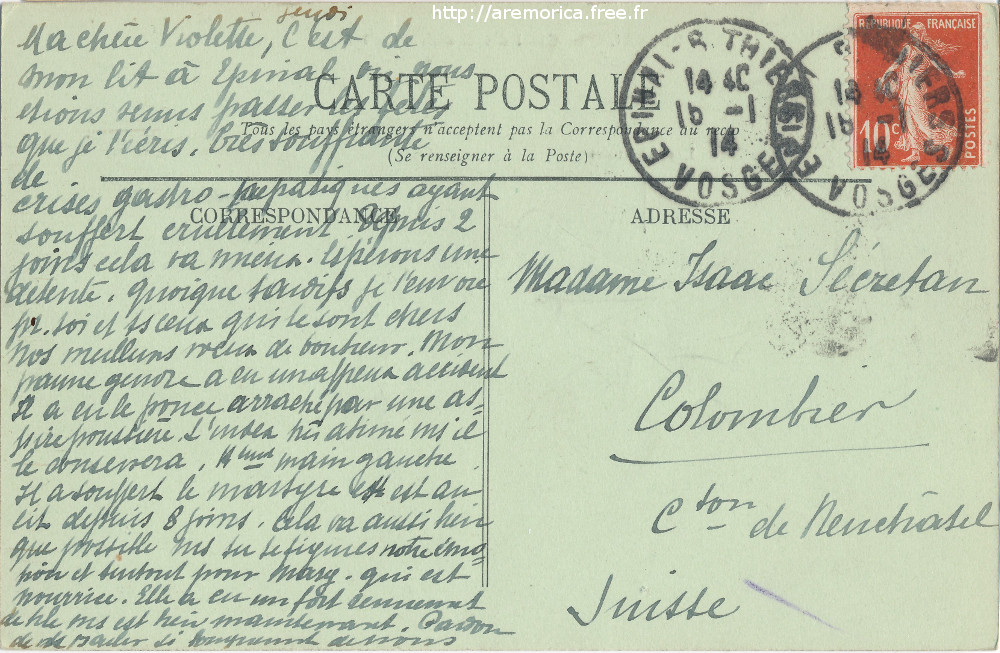 http://aremorica.free.fr
jeudi
Ma chère Violette, C'est de
mon lit à Epinal où nous
étions venus passer les fêtes
que je t'écris. très souffrante
de
crises gastro-hépatiques ayant
souffert cruellement Depuis 2
jours cela va mieux. Espérons une
détente. Quoique tardifs je t'envoie
pr. toi et ts ceux qui te sont chers
nos meilleurs vœux de bonheur. Mon
pauvre gendre a eu un affreux accident
Il a eu le pouce arraché par une as=
pire poussière. L'index très abîmé ms il
le conservera. main gauche
Il a souffert le martyre et est au
lit depuis 8 jours. Cela va aussi bien
que possible ms tu te figures notre émo
tion et surtout pour Marg. qui est
nourrice. Elle a eu un fort
ms est bien maintenant. Pardon
de de parler si longuement de nous
CARTE POSTALE
Tous les pays étrangers n'acceptent pas la Correspondance au recto
(Se renseigner à la Poste)
CORRESPONDANCE
ADRESSE
Madame Isaac Sécretan
Colombier
Cton de Neuchâtel
Suisse
14 40
15 -1
14
VOSGES
14
VOSGES
REPUBLIQUE FRANÇAISE
10c
POSTES